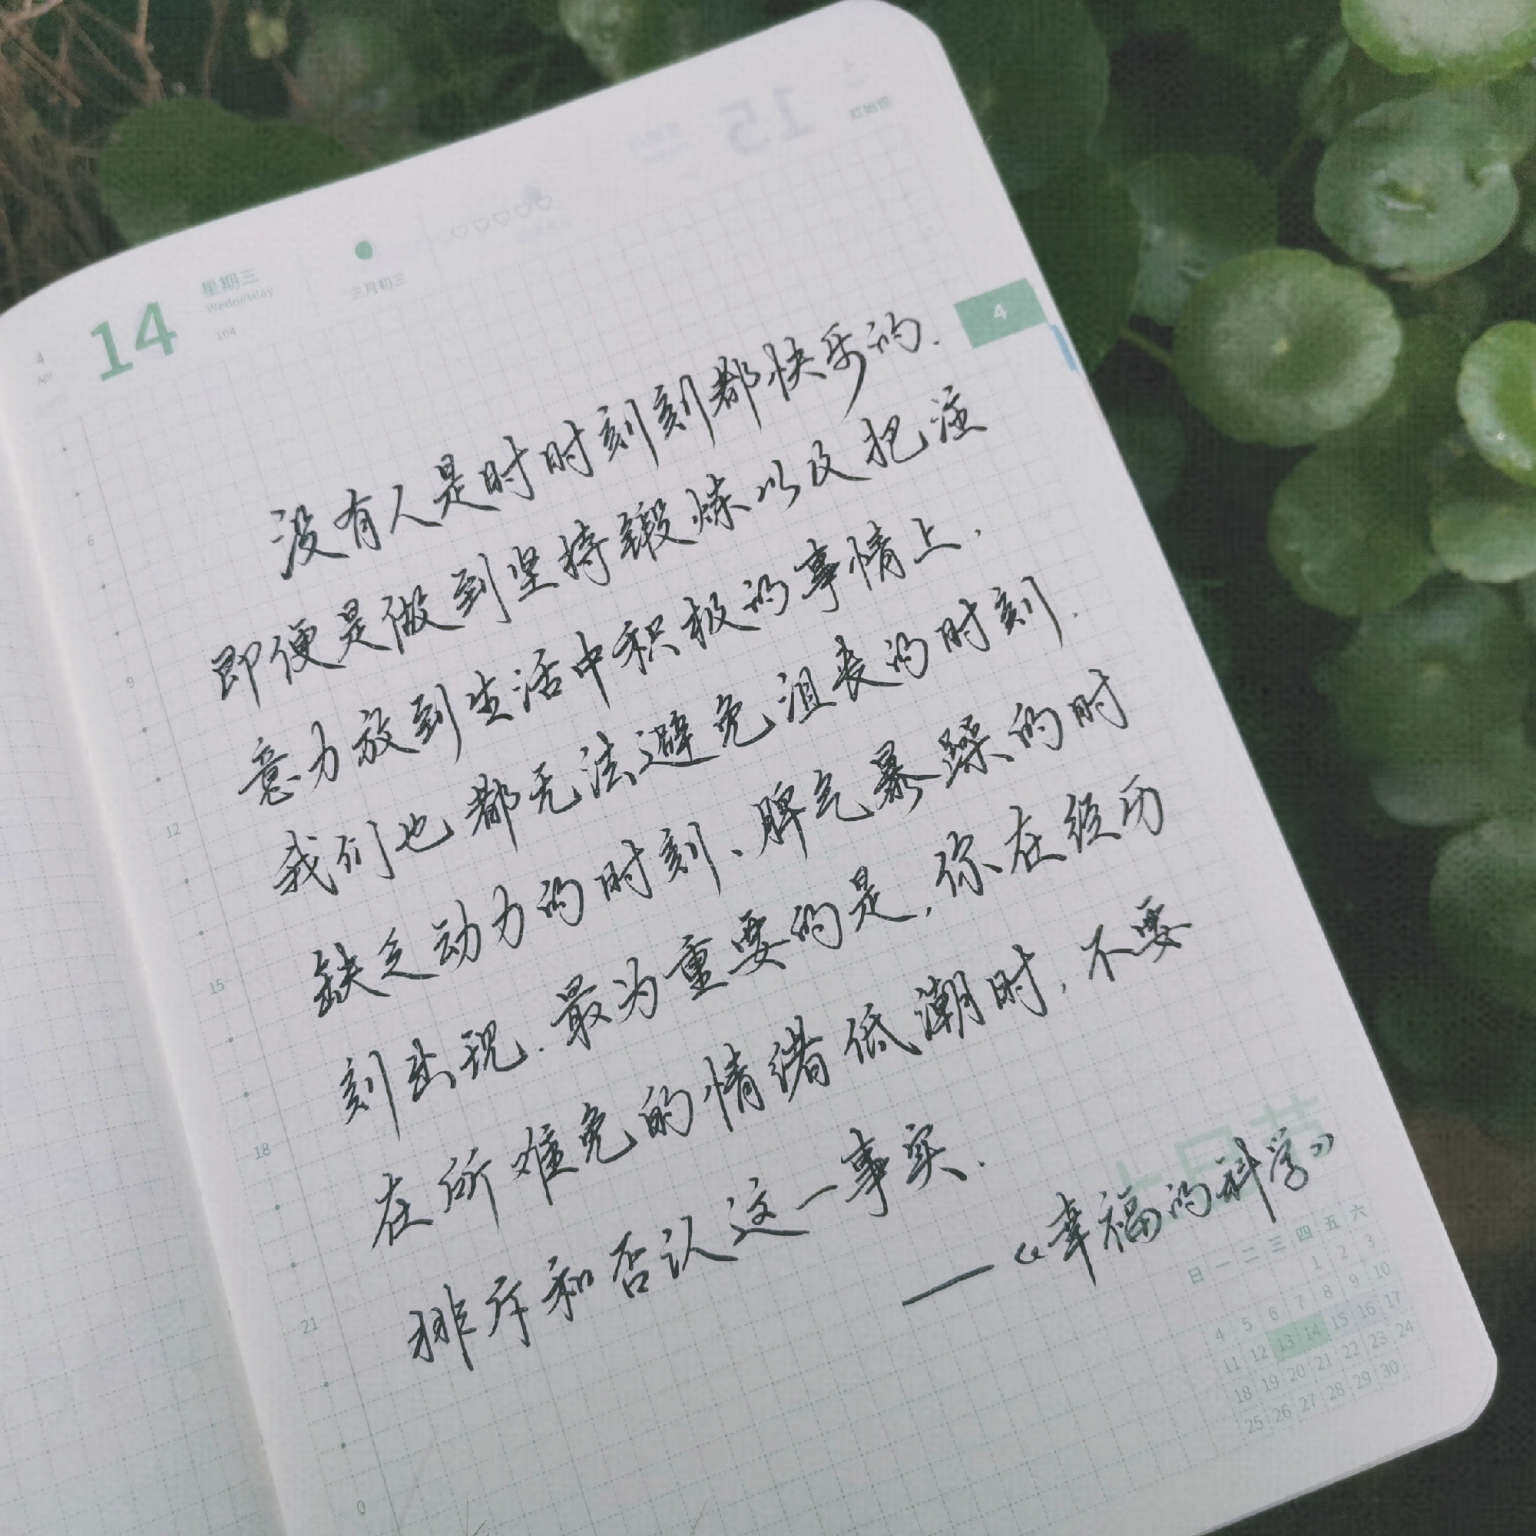 15
14
星期三
Wednesday
104
三月初三
4
Apr
4
没有人是时时刻刻都快乐的.
即便是做到坚持锻炼以及把注
意力放到生活中积极的事情上.
我们也都无法避免沮丧的时刻.
缺乏动力的时刻、脾气暴躁的时
刻出现.最为重要的是,你在经历
在所难免的情绪低潮时,不要
排斥和否认这一事实.
—《幸福的科学》
6
9
12
15
18
21
0
日 一 二 三 四 五 六
1 2 3
4 5 6 7 8 9 10
11 12 13 14 15 16 17
18 19 20 21 22 23 24
25 26 27 28 29 30